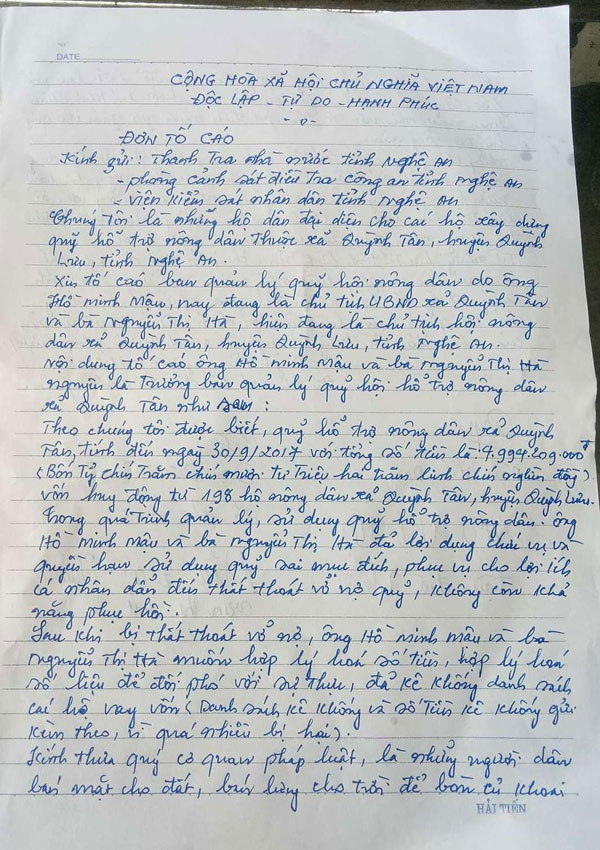 DATE
CỘNG HÒA XÃ HỘI CHỦ NGHĨA VIỆT NAM
ĐỘC LẬP - TỰ DO - HẠNH PHÚC
-o-
ĐƠN TỐ CÁO
Kính gửi: Thanh Tra nhà nước tỉnh Nghệ An
- phòng cảnh sát điều tra công an tỉnh Nghệ An
- viện kiểm sát nhân dân tỉnh Nghệ An
Chúng Tôi là những hộ dân đại diện cho các hộ xây dựng
quỹ hỗ trợ nông dân Thuộc xã Quỳnh Tân, huyện Quỳnh
Lưu, tỉnh Nghệ An.
Xin tố cáo ban quản lý quỹ hội nông dân do ông
Hồ minh Mậu, nay đang là chủ tịch UBND xã Quỳnh Tân
và bà Nguyễn Thị Hà, hiện đang là chủ tịch hội nông
dân xã Quỳnh Tân, huyện Quỳnh Lưu, tỉnh Nghệ An.
Nội dung tố cáo ông Hồ minh Mậu và bà Nguyễn Thị Hà
nguyên là Trưởng ban quản lý quỹ hội hổ trợ nông dân
xã Quỳnh Tân như sau:
Theo chúng tôi được biết, quỹ hổ trợ nông dân xã Quỳnh
Tân, tính đến ngày 30/9/2017 với tổng số tiền là 4.994.209.000đ
(Bốn Tỷ chín Trăm chín mươi tư Triệu hai trăm linh chín nghìn đồng)
vốn huy động từ 198 hộ nông dân xã Quỳnh Tân, huyện Quỳnh Lưu.
Trong quá Trình quản lý, sử dụng quỹ hổ trợ nông dân. ông
Hồ minh Mậu và bà Nguyễn Thị Hà đả lợi dụng chức vụ và
quyền hạn sử dụng quỹ sai mục đích, phục vụ cho lợi ích
cá nhân dẫn đến thất thoát vở nợ quỹ, không còn khả
năng phục hồi.
Sau khi bị thất thoát vở nợ, ông Hồ minh Mậu và bà
Nguyễn Thị Hà muốn hợp lý hoá số tiền, hợp lý hoá
số liệu để đối phó với sự thực, đả kê khống danh sách
các hộ vay vốn (Danh sách kê khống và số tiền kê khống gửi
kèm theo, vì quá nhiều bị hại).
Kính thưa quý cơ quan pháp luật, là những người dân
bán mặt cho đất, bán lưng cho trời để bòn củ khoai
HẢI TIẾN